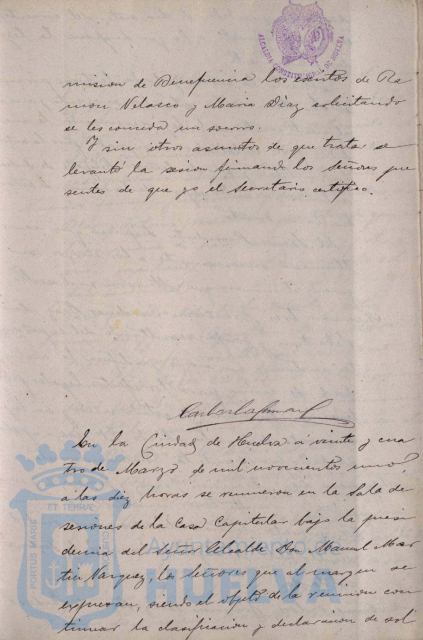 ALCALDIA CONSTITUCIONAL DE HUELVA
mision de Beneficencia los escritos de Ra
mon Velasco y Maria Diaz solicitando
se les conceda un socorro.
Y sin otros asuntos de que tratar se
levantó la sesion firmando los Señores pre
sentes de que yo el Secretario certifico.
En la Ciudad de Huelva a veinte y cua
tro de Marzo de mil novecientos uno,
a las diez horas se reunieron en la Sala de
sesiones de la Casa Capitular bajo la presi
dencia del Señor Alcalde Don Manuel Mar
tin Vazquez, los Señores que al margen se
expresan, siendo el objeto de la reunion con
tinuar la clasificacion y declaracion de sol
PORTUS MARIS ET TERRAE CUSTODIA
Ayuntamiento de
HUELVA